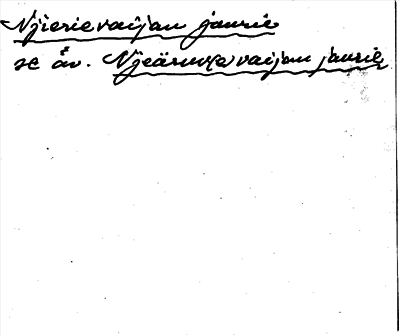 Njierievaijan jaurie
se äv. Njeärmievaijan jaurie